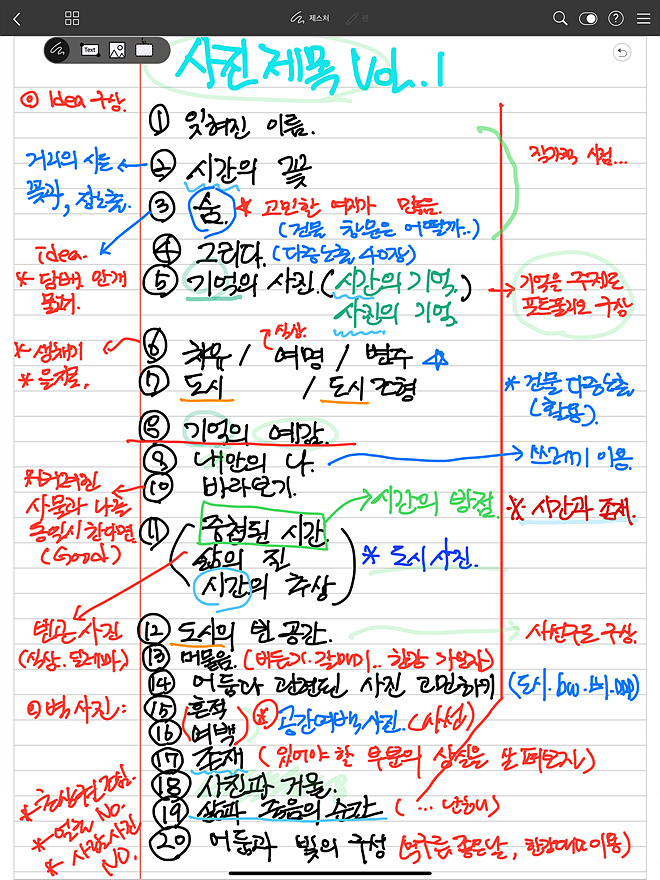 제스처
펜
Text
사진 제목 Vol..1
Idea 구상.
① 잊혀진 이름.
작가적 시점...
② 시간의 꽃
거리의 시든
꽃과,
③ 숨. * 고민할 여지가 많음.
(건물 창문은 어떨까..)
④ 그리다. (다중노출 40장)
idea.
* 담배, 안개
물체.
⑤ 기억의 사진. (시간의 기억,
사진의 기억,
기억을 주제로
포트폴리오 구상
색상.
⑥ 치유 / 여명 / 변주
* 을지로,
⑦ 도시 / 도시 조형
* 건물 다중노출
(활용).
⑧ 기억의 예감.
⑨ 내안의 나.
쓰레기 이용.
⑩ 바라보기.
* 버려진
사물과 나를
동일시 한다면
(Good)
시간의 방점.
* 시간과 존재.
⑪ 중첩된 시간.
삶의 진
시간의 추상
* 도시 사진.
빈곤 사진
(색상. 딜레마.)
⑫ 도시의 빈 공간.
사선구도 구상.
⑬ 머물음. (비둘기. 갈매기.. 한강 가있자)
⑭ 어둠과 관련된 사진 고민하기 (도시. bw. 비.
벽 사진:
⑮ 흔적
⑯ 여백
* 공간여백 사진. (사선)
⑰ 존재 (있어야 할 부분의 상실을 살펴보자)
⑱ 사진과 거울.
⑲ 삶과 죽음의 순간 (...
* 얼굴 NO.
* 사람사진
NO.
⑳ 어둠과 빛의 구성 (먹구름, 좋은날, 한강대교 이용)